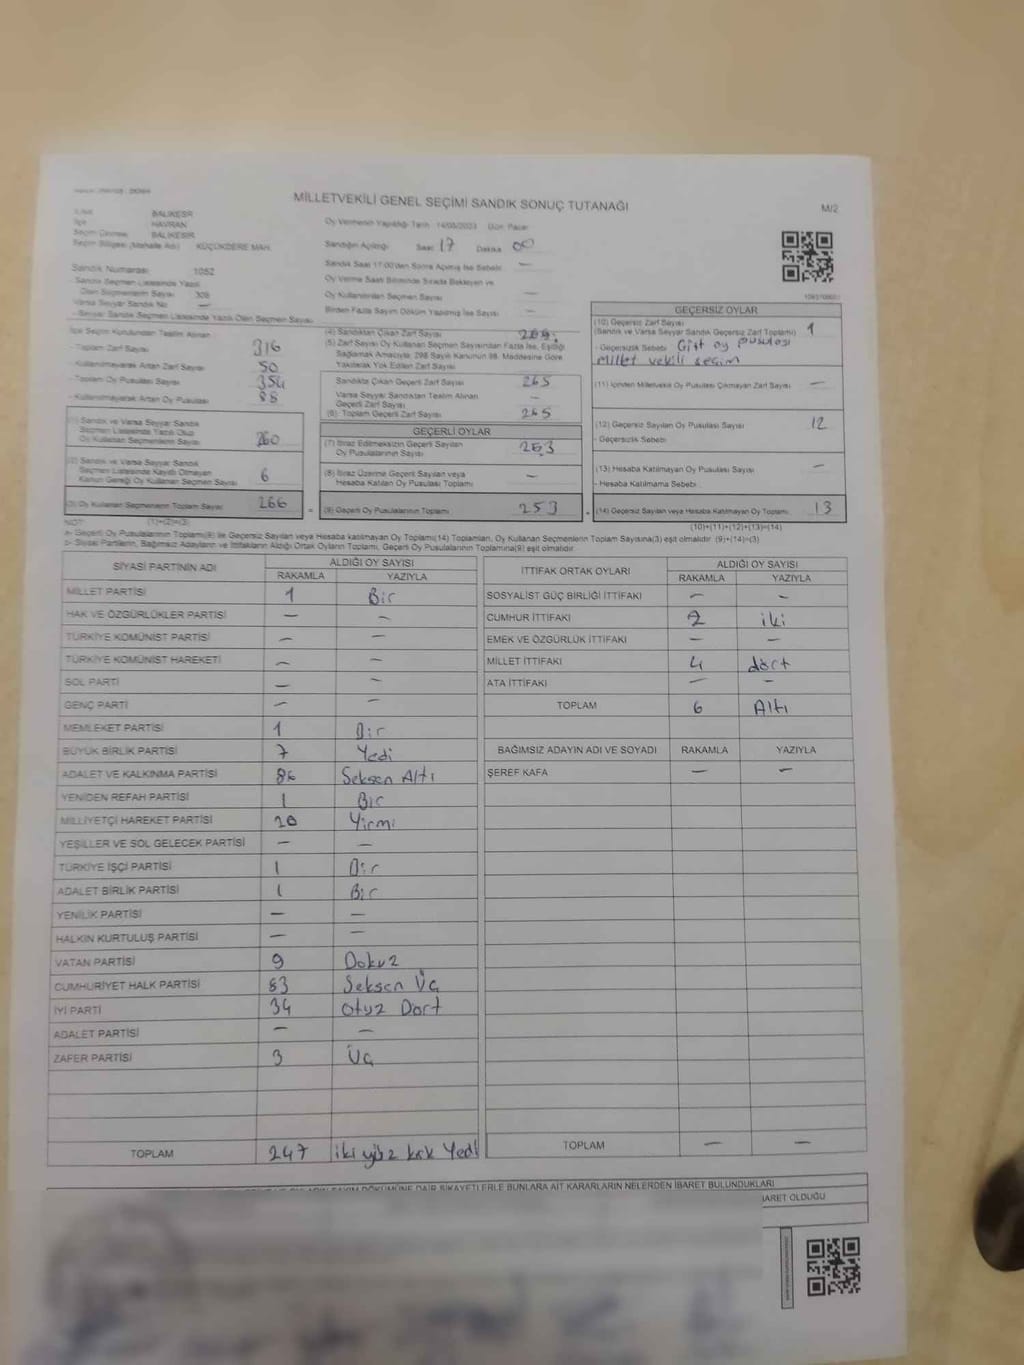 MİLLETVEKİLİ GENEL SEÇİMİ SANDIK SONUÇ TUTANAĞI
M/2
BALIKESİR
HAVRAN
BALIKESİR
Seçim Bölgesi (Mahalle Adı) KÜÇÜKDERE MAH.
Sandık Numarası 1052
Sandık Seçmen Listesinde Yazılı
Olan Seçmenlerin Sayısı 308
Varsa Seyyar Sandık No —
Oy Vermenin Yapıldığı Tarih 14/05/2023 Gün Pazar
Sandığın Açılışı Saat 17 Dakika 00
Sandık Saat 17:00'den Sonra Açılmış İse Sebebi —
Oy Verme Saati Bitiminde Sırada Bekleyen ve
Oy Kullandırılan Seçmen Sayısı —
Birden Fazla Sayım Döküm Yapılmış İse Sayısı —
İlçe Seçim Kurulundan Teslim Alınan
- Toplam Zarf Sayısı 316
- Kullanılmayarak Artan Zarf Sayısı 50
- Toplam Oy Pusulası Sayısı 354
- Kullanılmayarak Artan Oy Pusulası 88
(1) Sandık ve Varsa Seyyar Sandık
Seçmen Listesinde Yazılı Olup
Oy Kullanan Seçmenlerin Sayısı 260
(2) Sandık ve Varsa Seyyar Sandık
Seçmen Listesinde Kayıtlı Olmayan
Kanun Gereği Oy Kullanan Seçmen Sayısı 6
(3) Oy Kullanan Seçmenlerin Toplam Sayısı 266
(4) Sandıktan Çıkan Zarf Sayısı
(5) Zarf Sayısı Oy Kullanan Seçmen Sayısından Fazla İse, Eşitliği
Sağlamak Amacıyla; 298 Sayılı Kanunun 98. Maddesine Göre
Yakılarak Yok Edilen Zarf Sayısı
Sandıkta Çıkan Geçerli Zarf Sayısı 265
Varsa Seyyar Sandıktan Teslim Alınan
Geçerli Zarf Sayısı —
(6) Toplam Geçerli Zarf Sayısı 265
GEÇERLİ OYLAR
(7) İtiraz Edilmeksizin Geçerli Sayılan
Oy Pusulalarının Sayısı 253
(8) İtiraz Üzerine Geçerli Sayılan veya
Hesaba Katılan Oy Pusulası Toplamı —
= (9) Geçerli Oy Pusulalarının Toplamı 253
GEÇERSİZ OYLAR
(10) Geçersiz Zarf Sayısı
(Sandık ve Varsa Seyyar Sandık Geçersiz Zarf Toplamı) 1
- Geçersizlik Sebebi Çift oy pusulası
Millet vekili seçim
(11) İçinden Milletvekili Oy Pusulası Çıkmayan Zarf Sayısı —
(12) Geçersiz Sayılan Oy Pusulası Sayısı 12
- Geçersizlik Sebebi
(13) Hesaba Katılmayan Oy Pusulası Sayısı —
- Hesaba Katılmama Sebebi
+ (14) Geçersiz Sayılan veya Hesaba Katılmayan Oy Toplamı 13
NOT: (1)+(2)=(3)
(10)+(11)+(12)+(13)=(14)
a- Geçerli Oy Pusulalarının Toplamı(9) ile Geçersiz Sayılan veya Hesaba katılmayan Oy Toplamı(14) Toplamları, Oy Kullanan Seçmenlerin Toplam Sayısına(3) eşit olmalıdır. (9)+(14)=(3)
b- Siyasi Partilerin, Bağımsız Adayların ve İttifakların Aldığı Ortak Oyların Toplamı, Geçerli Oy Pusulalarının Toplamına(9) eşit olmalıdır.
SİYASİ PARTİNİN ADI ALDIĞI OY SAYISI
RAKAMLA YAZIYLA
MİLLET PARTİSİ 1 Bir
HAK VE ÖZGÜRLÜKLER PARTİSİ — —
TÜRKİYE KOMÜNİST PARTİSİ — —
TÜRKİYE KOMÜNİST HAREKETİ — —
SOL PARTİ — —
GENÇ PARTİ — —
MEMLEKET PARTİSİ 1 Bir
BÜYÜK BİRLİK PARTİSİ 7 Yedi
ADALET VE KALKINMA PARTİSİ 86 Seksen Altı
YENİDEN REFAH PARTİSİ 1 Bir
MİLLİYETÇİ HAREKET PARTİSİ 20 Yirmi
YEŞİLLER VE SOL GELECEK PARTİSİ — —
TÜRKİYE İŞÇİ PARTİSİ 1 Bir
ADALET BİRLİK PARTİSİ 1 Bir
YENİLİK PARTİSİ — —
HALKIN KURTULUŞ PARTİSİ — —
VATAN PARTİSİ 9 Dokuz
CUMHURİYET HALK PARTİSİ 83 Seksen Üç
İYİ PARTİ 34 Otuz Dört
ADALET PARTİSİ — —
ZAFER PARTİSİ 3 Üç
TOPLAM 247 iki yüz kırk Yedi
İTTİFAK ORTAK OYLARI ALDIĞI OY SAYISI
RAKAMLA YAZIYLA
SOSYALİST GÜÇ BİRLİĞİ İTTİFAKI — —
CUMHUR İTTİFAKI 2 iki
EMEK VE ÖZGÜRLÜK İTTİFAKI — —
MİLLET İTTİFAKI 4 dört
ATA İTTİFAKI — —
TOPLAM 6 Altı
BAĞIMSIZ ADAYIN ADI VE SOYADI RAKAMLA YAZIYLA
ŞEREF KAFA — —
TOPLAM — —
DÖKÜMÜNE DAİR ŞİKAYETLERLE BUNLARA AİT KARARLARIN NELERDEN İBARET BULUNDUKLARI
İBARET OLDUĞU